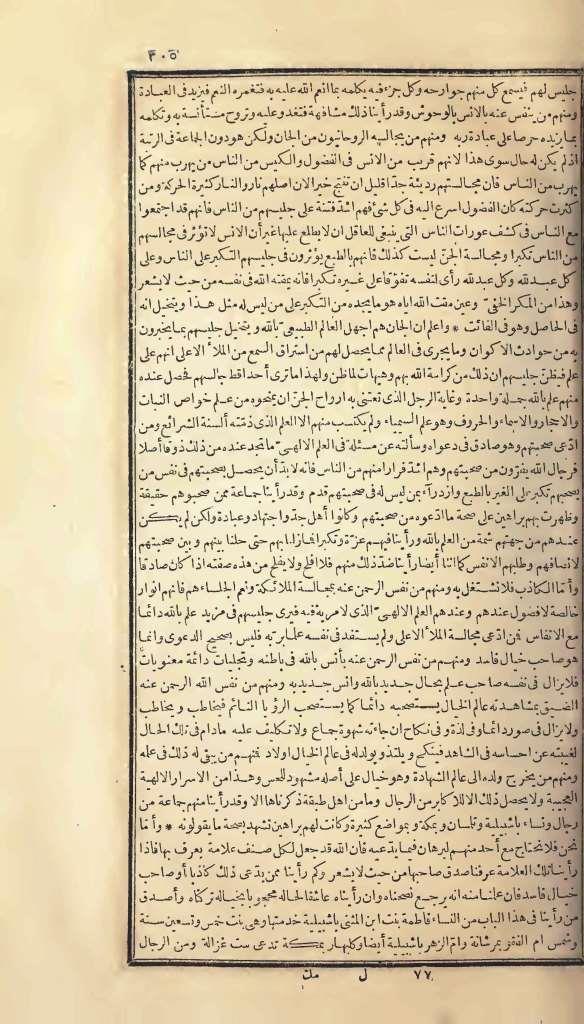 ٣٠٥
جليس لهم فيسمع كل منهم جوارحه وكل جزء فيه يكلمه بما أنعم الله عليه به فتغمره النعم فيزيد في العبادة
ومنهم من ينفس عنه بالانس بالوحوش وقد رأينا ذلك مشافهة فتغدو عليه وتروح مستأنسة به وتكلمه
بما يزيده حرصا على عبادة ربه ومنهم من يجالسه الروحانيون من الجان ولكن هو دون الجماعة في الرتبة
اذ لم يكن له حال سوى هذا لانهم قريب من الانس في الفضول والكيس من الناس من يهرب منهم كما
يهرب من الناس فان مجالستهم رديئة جدا قليل ان تنتج خيرا لان اصلهم نار والنار كثيرة الحركة ومن
كثرت حركته كان الفضول اسرع اليه في كل شئ فهم اشد فتنة على جليسهم من الناس فانهم قد اجتمعوا
مع الناس في كشف عورات الناس التي ينبغي للعاقل ان لا يطلع عليها غير أن الانس لا تؤثر في مجالسهم
من الناس تكبرا ومجالسة الجن ليست كذلك فانهم بالطبع يؤثرون في جليسهم التكبر على الناس وعلى
كل عبد لله وكل عبد لله رأى لنفسه تفوقا على غيره تكبرا فانه يمقته الله في نفسه من حيث لا يشعر
وهذا من المكر الخفي وعين مقت الله اياه هو ما يجده من التكبر على من ليس له مثل هذا ويتخيل انه
في الحاصل وهو في الفائت * واعلم ان الجان هم اجهل العالم الطبيعي بالله ويتخيل جليسهم بما يخبرون
به من حوادث الاكوان وما يجرى في العالم مما يحصل لهم من استراق السمع من الملأ الاعلى انهم على
علم فيظن جليسهم ان ذلك من كرامة الله بهم وهيهات لما ظن ولهذا ما ترى أحدا قط جالسهم فحصل عنده
منهم علم بالله جملة واحدة وغاية الرجل الذي تعتني به ارواح الجن ان يمنحوه من علم خواص النبات
والاحجار والاسماء والحروف وهو علم السيمياء ولم يكتسب منهم الا العلم الذي ذمته ألسنة الشرائع ومن
ادعى صحبتهم وهو صادق في دعواه وسألته عن مسئلة في العلم الالهي ما تجد عنده من ذلك ذوقا أصلا
فرجال الله يفرون من صحبتهم وهم اشد فرارا منهم من الناس فانه لا بد أن يحصل بصحبتهم في نفس من
يصحبهم تكبر على الغير بالطبع وازدراء بمن ليس له في صحبتهم قدم وقد رأينا جماعة ممن صحبوهم حقيقة
وظهرت بهم براهين على صحة ما ادعوه من صحبتهم وكانوا أهل جد واجتهاد وعبادة ولكن لم يكن
عندهم من جهتهم شمة من العلم بالله ورأينا فيهم عزة وتكبرا فما زلنا بهم حتى حلنا بينهم وبين صحبتهم
لانصافهم وطلبهم الانفس كما اننا أيضا رأينا ضد ذلك منهم فلا افلح ولا يفلح من هذه صفته اذا كان صادقا
وأما الكاذب فلا نشتغل به ومنهم من نفس الرحمن عنه بمجالسة الملائكة ونعم الجلساء هم فانهم انوار
خالصة لا فضول عندهم وعندهم العلم الالهي الذي لا مرية فيه فيرى جليسهم في مزيد علم بالله دائما
مع الانفاس فمن ادعى مجالسة الملأ الاعلى ولم يستفد في نفسه علما بربه فليس بصحيح الدعوى وانما
هو صاحب خيال فاسد ومنهم من نفس الرحمن عنه بأنس بالله في باطنه وتجليات دائمة معنويات
فلا يزال في نفسه صاحب علم بحال جديد بالله وانس جديد به ومنهم من نفس الله الرحمن عنه
الضيق بمشاهدته عالم الخيال يستصحبه دائما كما يستصحب الرؤيا النائم فيخاطب ويخاطب
ولا يزال في صور دائما وفي لذة وفي نكاح ان جاءته شهوة جماع ولا تكليف عليه ما دام في تلك الحال
لغيبته عن احساسه في الشاهد فينكح ويلتذ ويولد له في عالم الخيال اولاد فمنهم من يبقى له ذلك في عمله
ومنهم من يخرج ولده الى عالم الشهادة وهو خيال على أصله مشهود للحس وهذا من الاسرار الالهية
العجيبة ولا يحصل ذلك الا للاكابر من الرجال وما من اهل طبقة ذكرناها الا وقد رأينا منهم جماعة من
رجال ونساء باشبيلية وتلمسان وبمكة وبمواضع كثيرة وكانت لهم براهين تشهد بصحة ما يقولونه * وأما
نحن فلا نحتاج مع أحد منهم لبرهان فيما يدعيه فان الله قد جعل لكل صنف علامة يعرف بها فاذا
رأينا تلك العلامة عرفنا صدق صاحبها من حيث لا يشعر وكم رأينا ممن يدعى ذلك كاذبا أو صاحب
خيال فاسد فان علمنا منه انه يرجع نصحناه وان رأيناه عاشقا لحاله محجوبا بخياله تركناه وأصدق
من رأينا في هذا الباب من النساء فاطمة بنت ابن المثنى باشبيلية خدمتها وهي بنت خمس وتسعين سنة
وشمس ام الفقراء بمرشانة وام الزهر باشبيلية أيضا وكلبهار بمكة تدعى ست غزالة ومن الرجال
٧٧ ل مك